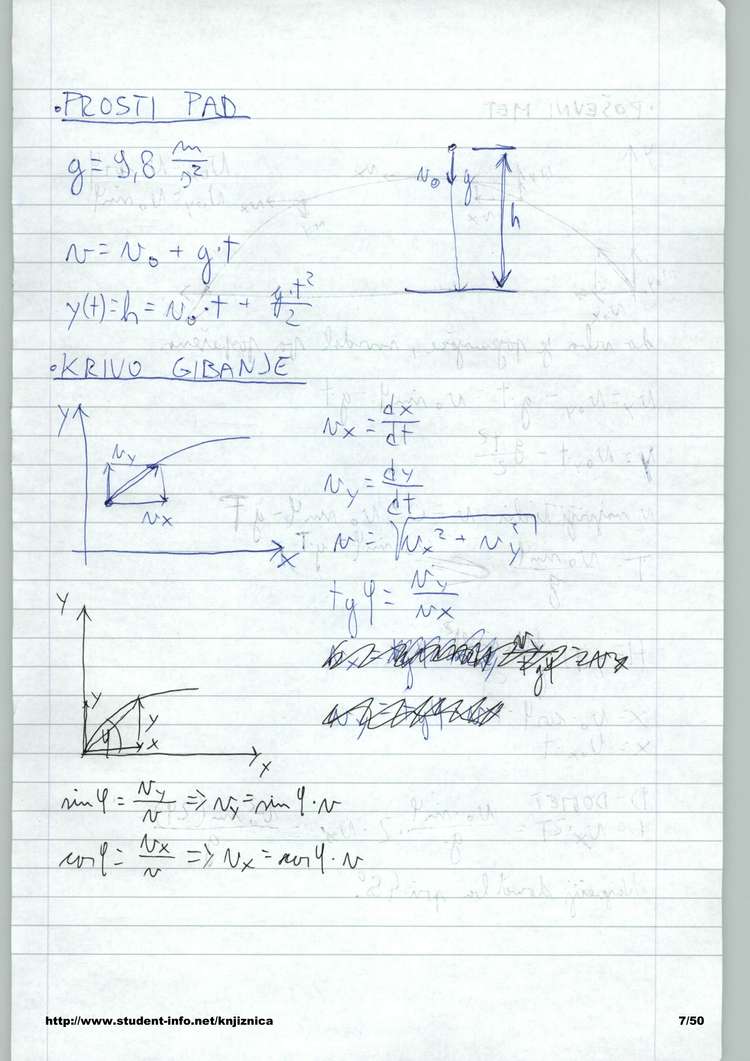 • PROSTI PAD
g = 9,8 m/s²
v₀ g h
v = v₀ + g·t
y(t) = h = v₀·t + g·t²/2
• KRIVO GIBANJE
y
vy
vx
x
vx = dx/dt
vy = dy/dt
v = √(vx² + vy²)
tg φ = vy/vx
y
y φ x y
x
sin φ = vy/v => vy = sin φ · v
cos φ = vx/v => vx = cos φ · v
http://www.student-info.net/knjiznica 7/50